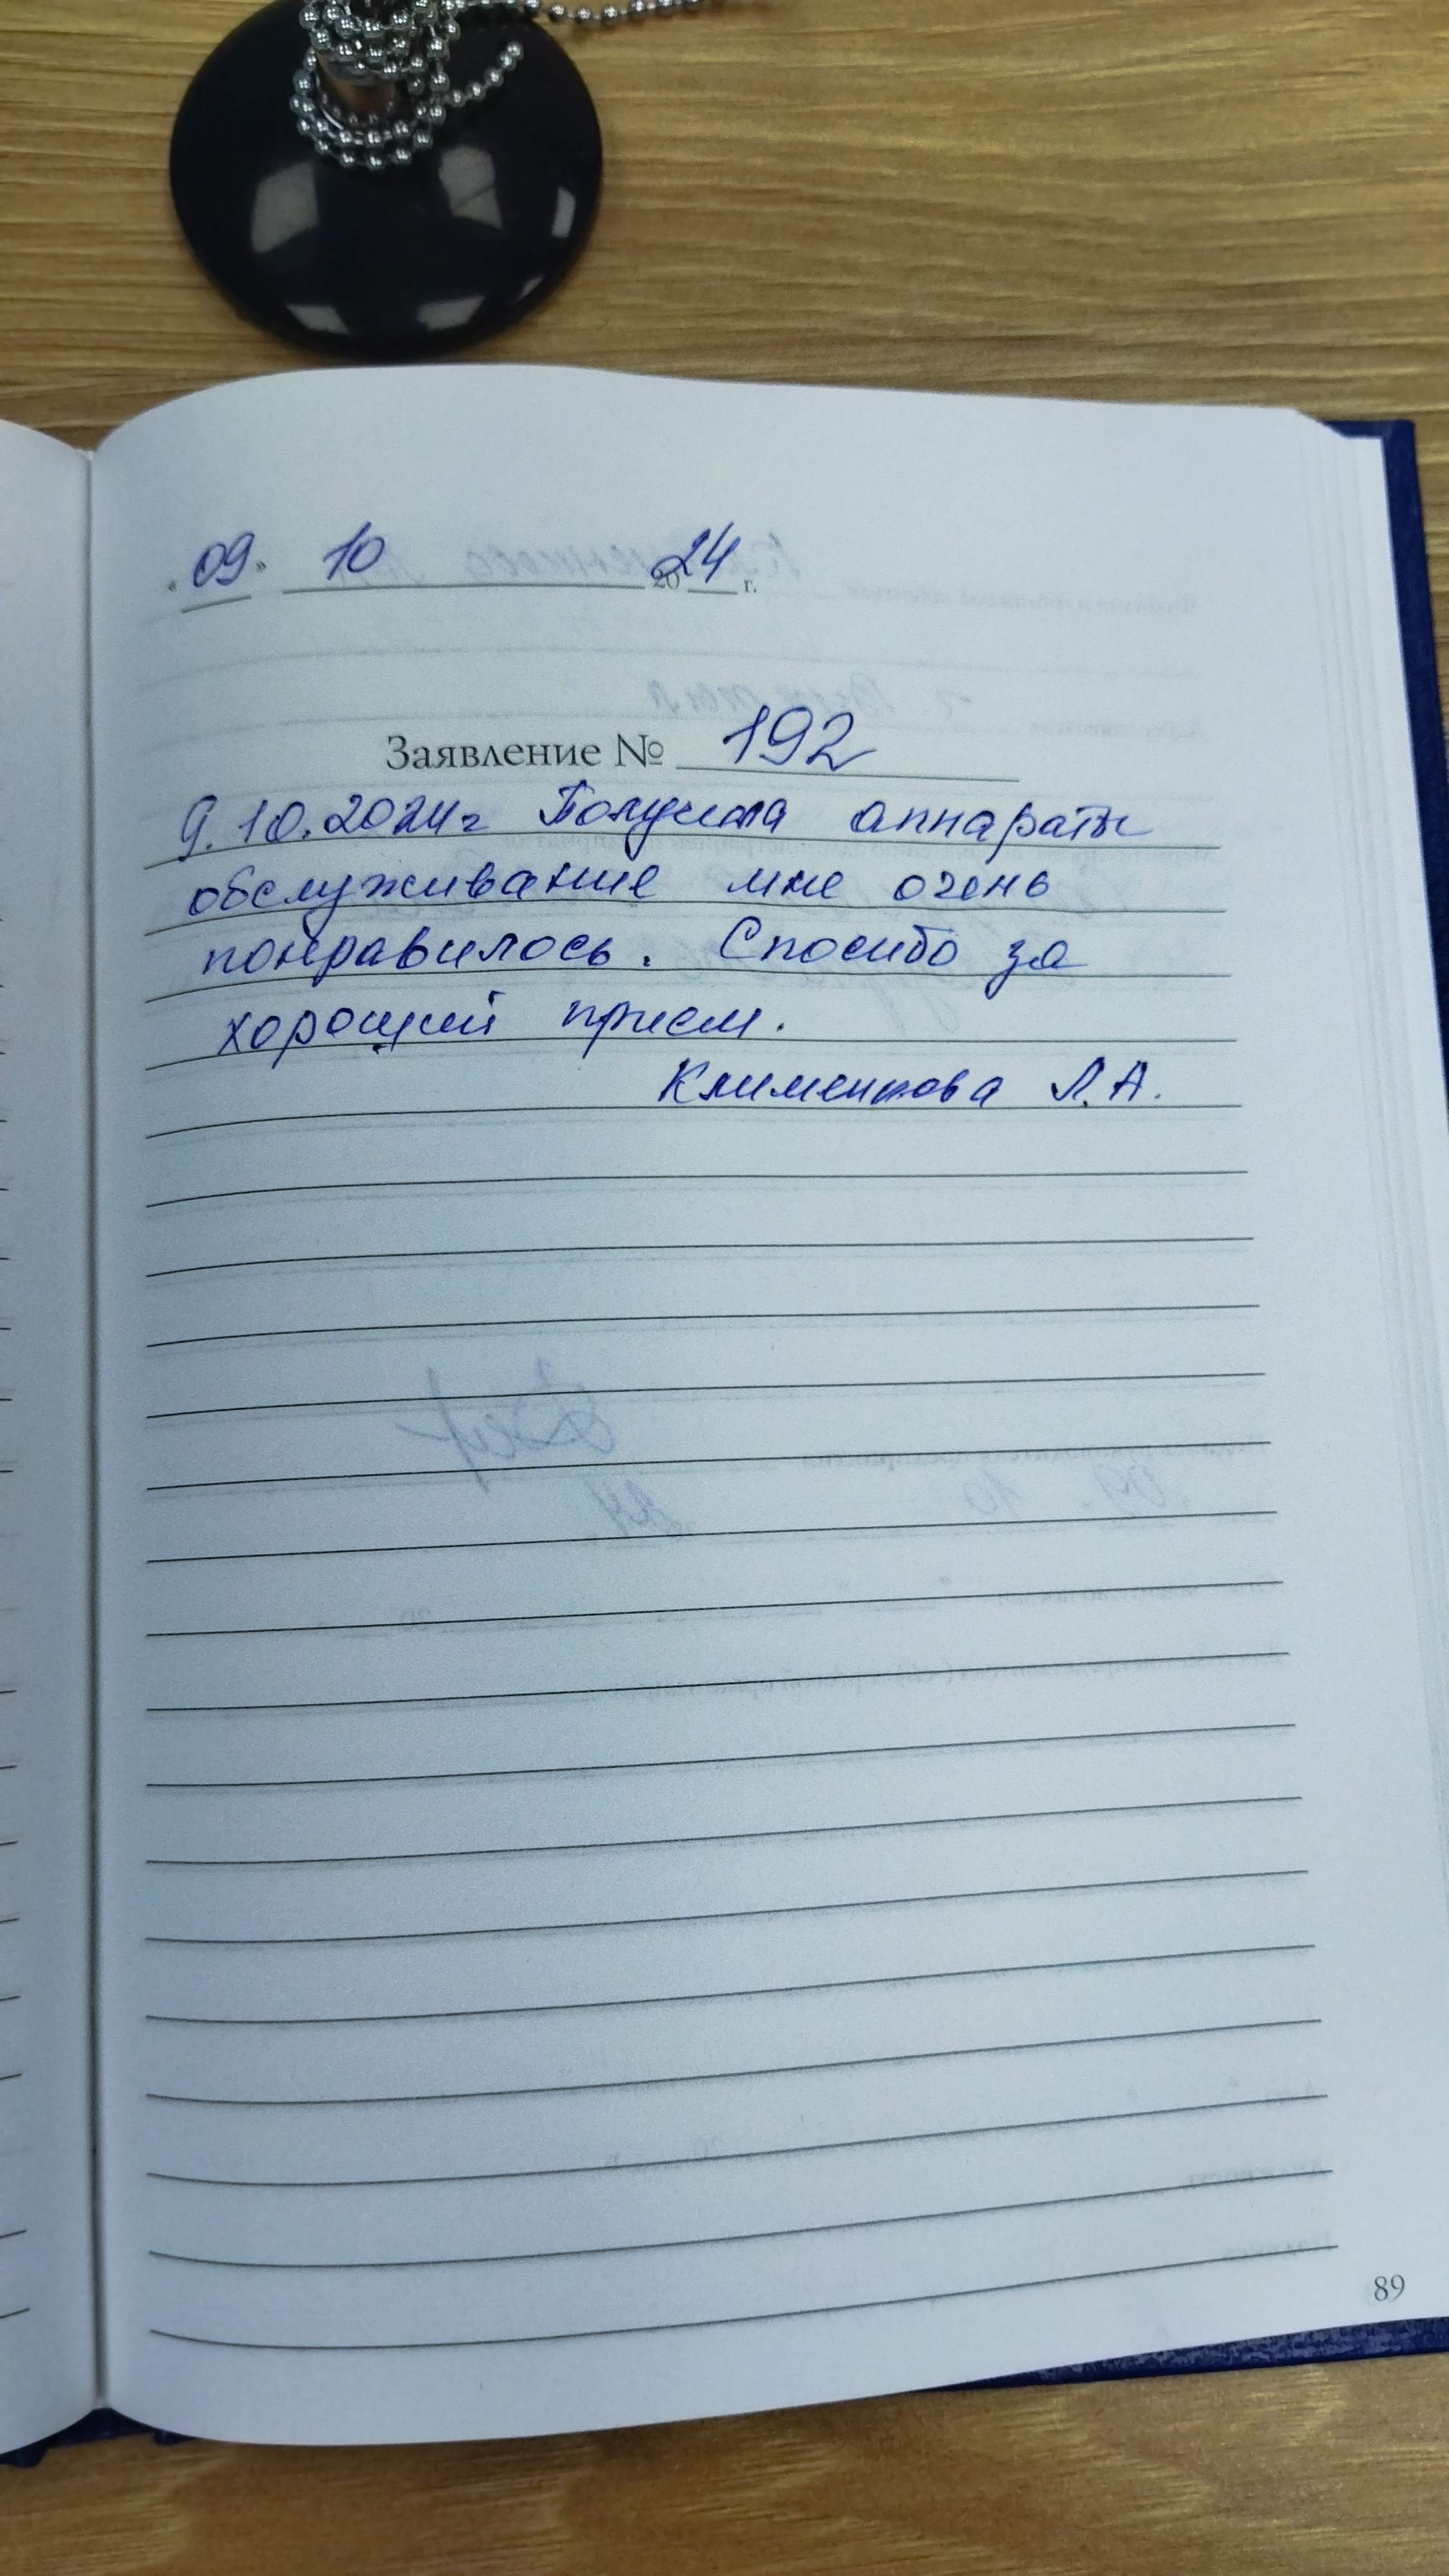 « 09 » 10 2024 г.
Заявление № 192
9.10.2024г Получила аппараты
обслуживание мне очень
понравилось. Спосибо за
хороший прием.
Клименкова Л.А.
89